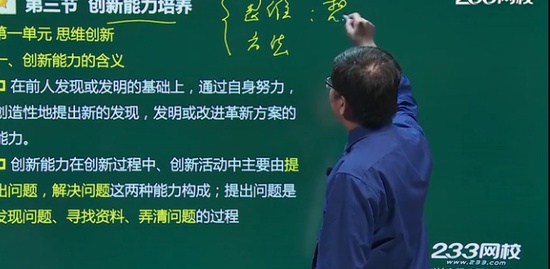 第三节 创新能力培养
思维：
方法
第一单元 思维创新
一、创新能力的含义
在前人发现或发明的基础上，通过自身努力，
创造性地提出新的发现，发明或改进革新方案的
能力。
创新能力在创新过程中、创新活动中主要由提
出问题，解决问题这两种能力构成；提出问题是
发现问题、寻找资料、弄清问题的过程
233网校
www.233.com
233网校
www.233.com